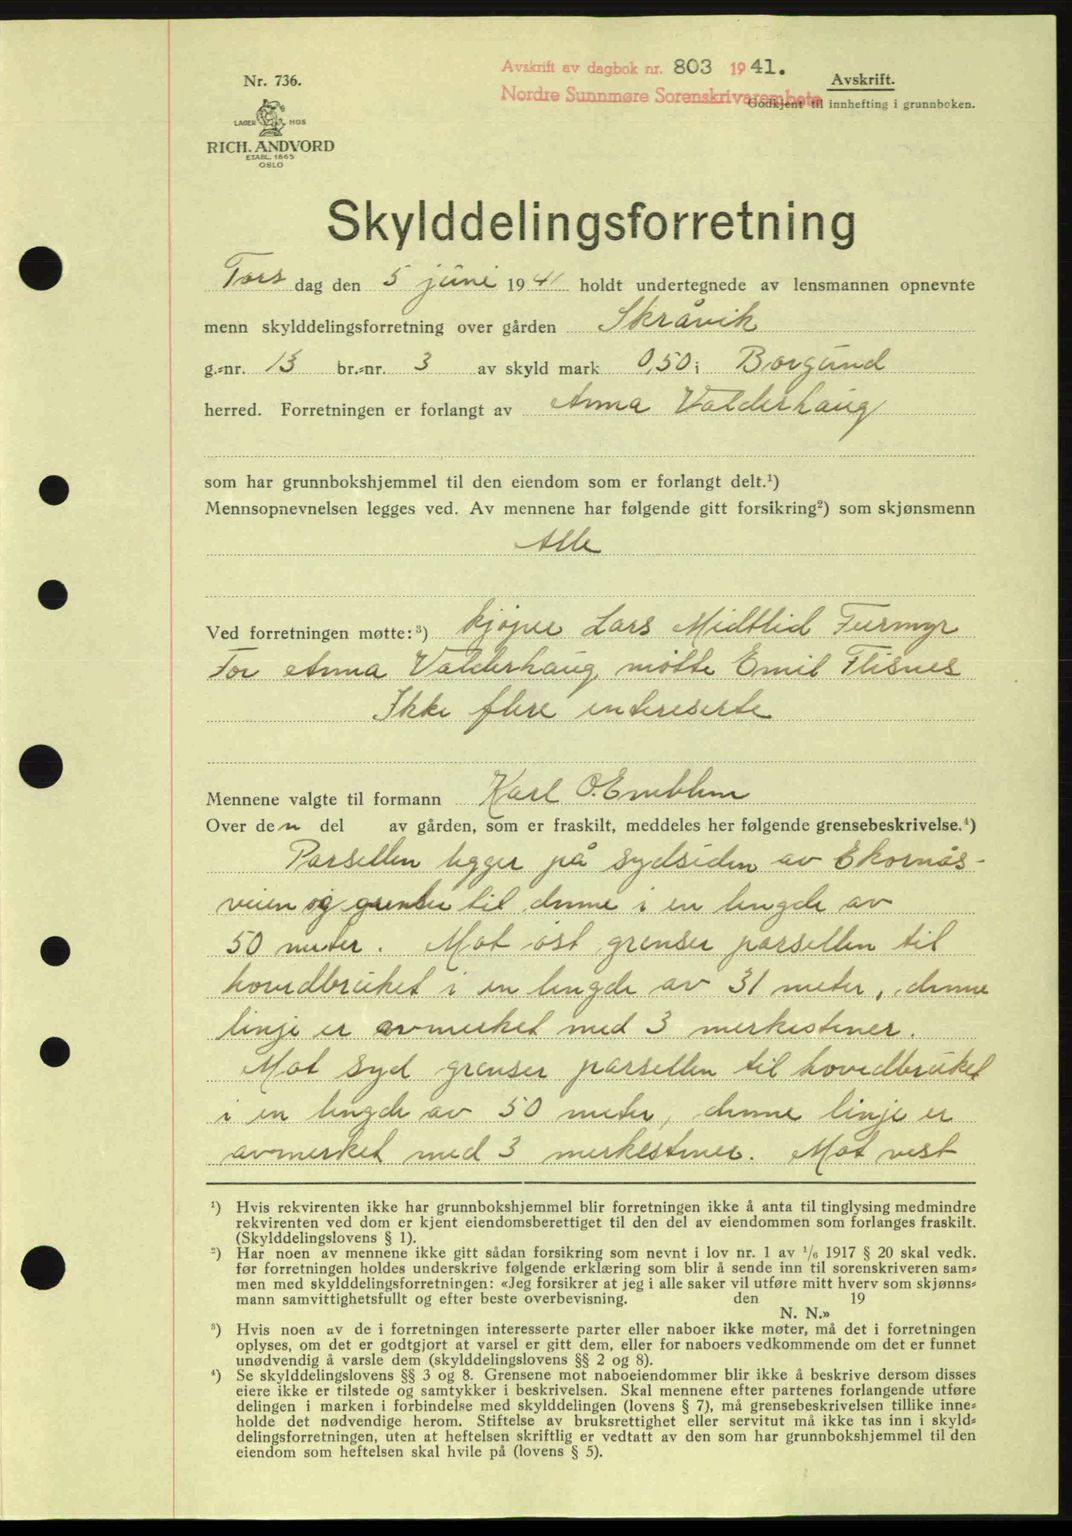 Nr. 736.
LAGER HOS
RICH. ANDVORD
ETABL. 1865
OSLO
Avskrift av dagbok nr. 803 1941.
Nordre Sunnmøre Sorenskriverembete
Avskrift.
Godkjent til innhefting i grunnboken.
Skylddelingsforretning
Tors dag den 5 juni 1941 holdt undertegnede av lensmannen opnevnte
menn skylddelingsforretning over gården Skråvik
g.=nr. 13 br.=nr. 3 av skyld mark 0,50 i Borgund
herred. Forretningen er forlangt av Anna Valderhaug
som har grunnbokshjemmel til den eiendom som er forlangt delt.¹)
Mennsopnevnelsen legges ved. Av mennene har følgende gitt forsikring²) som skjønsmenn
Alle
Ved forretningen møtte:³) kjøper Lars Midtlid Furmyr
For Anna Valderhaug møtte Emil Flisnes
Ikke flere intereserte
Mennene valgte til formann Karl O. Emblem
Over den del av gården, som er fraskilt, meddeles her følgende grensebeskrivelse.⁴)
Parsellen ligger på sydsiden av Ekornås-
veien og grenser til denne i en lengde av
50 meter. Mot øst grenser parsellen til
hovedbruket i en lengde av 31 meter, denne
linje er avmerket med 3 merkestener.
Mot syd grenser parsellen til hovedbruket
i en lengde av 50 meter, denne linje er
avmerket med 3 merkestener. Mot vest
¹) Hvis rekvirenten ikke har grunnbokshjemmel blir forretningen ikke å anta til tinglysing medmindre
rekvirenten ved dom er kjent eiendomsberettiget til den del av eiendommen som forlanges fraskilt.
(Skylddelingslovens § 1).
²) Har noen av mennene ikke gitt sådan forsikring som nevnt i lov nr. 1 av ¹/₆ 1917 § 20 skal vedk.
før forretningen holdes underskrive følgende erklæring som blir å sende inn til sorenskriveren sam=
men med skylddelingsforretningen: «Jeg forsikrer at jeg i alle saker vil utføre mitt hverv som skjønns=
mann samvittighetsfullt og efter beste overbevisning. den 19
N. N.»
³) Hvis noen av de i forretningen interesserte parter eller naboer ikke møter, må det i forretningen
oplyses, om det er godtgjort at varsel er gitt dem, eller for naboers vedkommende om det er funnet
unødvendig å varsle dem (skylddelingslovens §§ 2 og 8).
⁴) Se skylddelingslovens §§ 3 og 8. Grensene mot naboeiendommer blir ikke å beskrive dersom disses
eiere ikke er tilstede og samtykker i beskrivelsen. Skal mennene efter partenes forlangende utføre
delingen i marken i forbindelse med skylddelingen (lovens § 7), må grensebeskrivelsen tillike inne=
holde det nødvendige herom. Stiftelse av bruksrettighet eller servitut må ikke tas inn i skyld=
delingsforretningen, uten at heftelsen skriftlig er vedtatt av den som har grunnbokshjemmel til den
eiendom som heftelsen skal hvile på (lovens § 5).